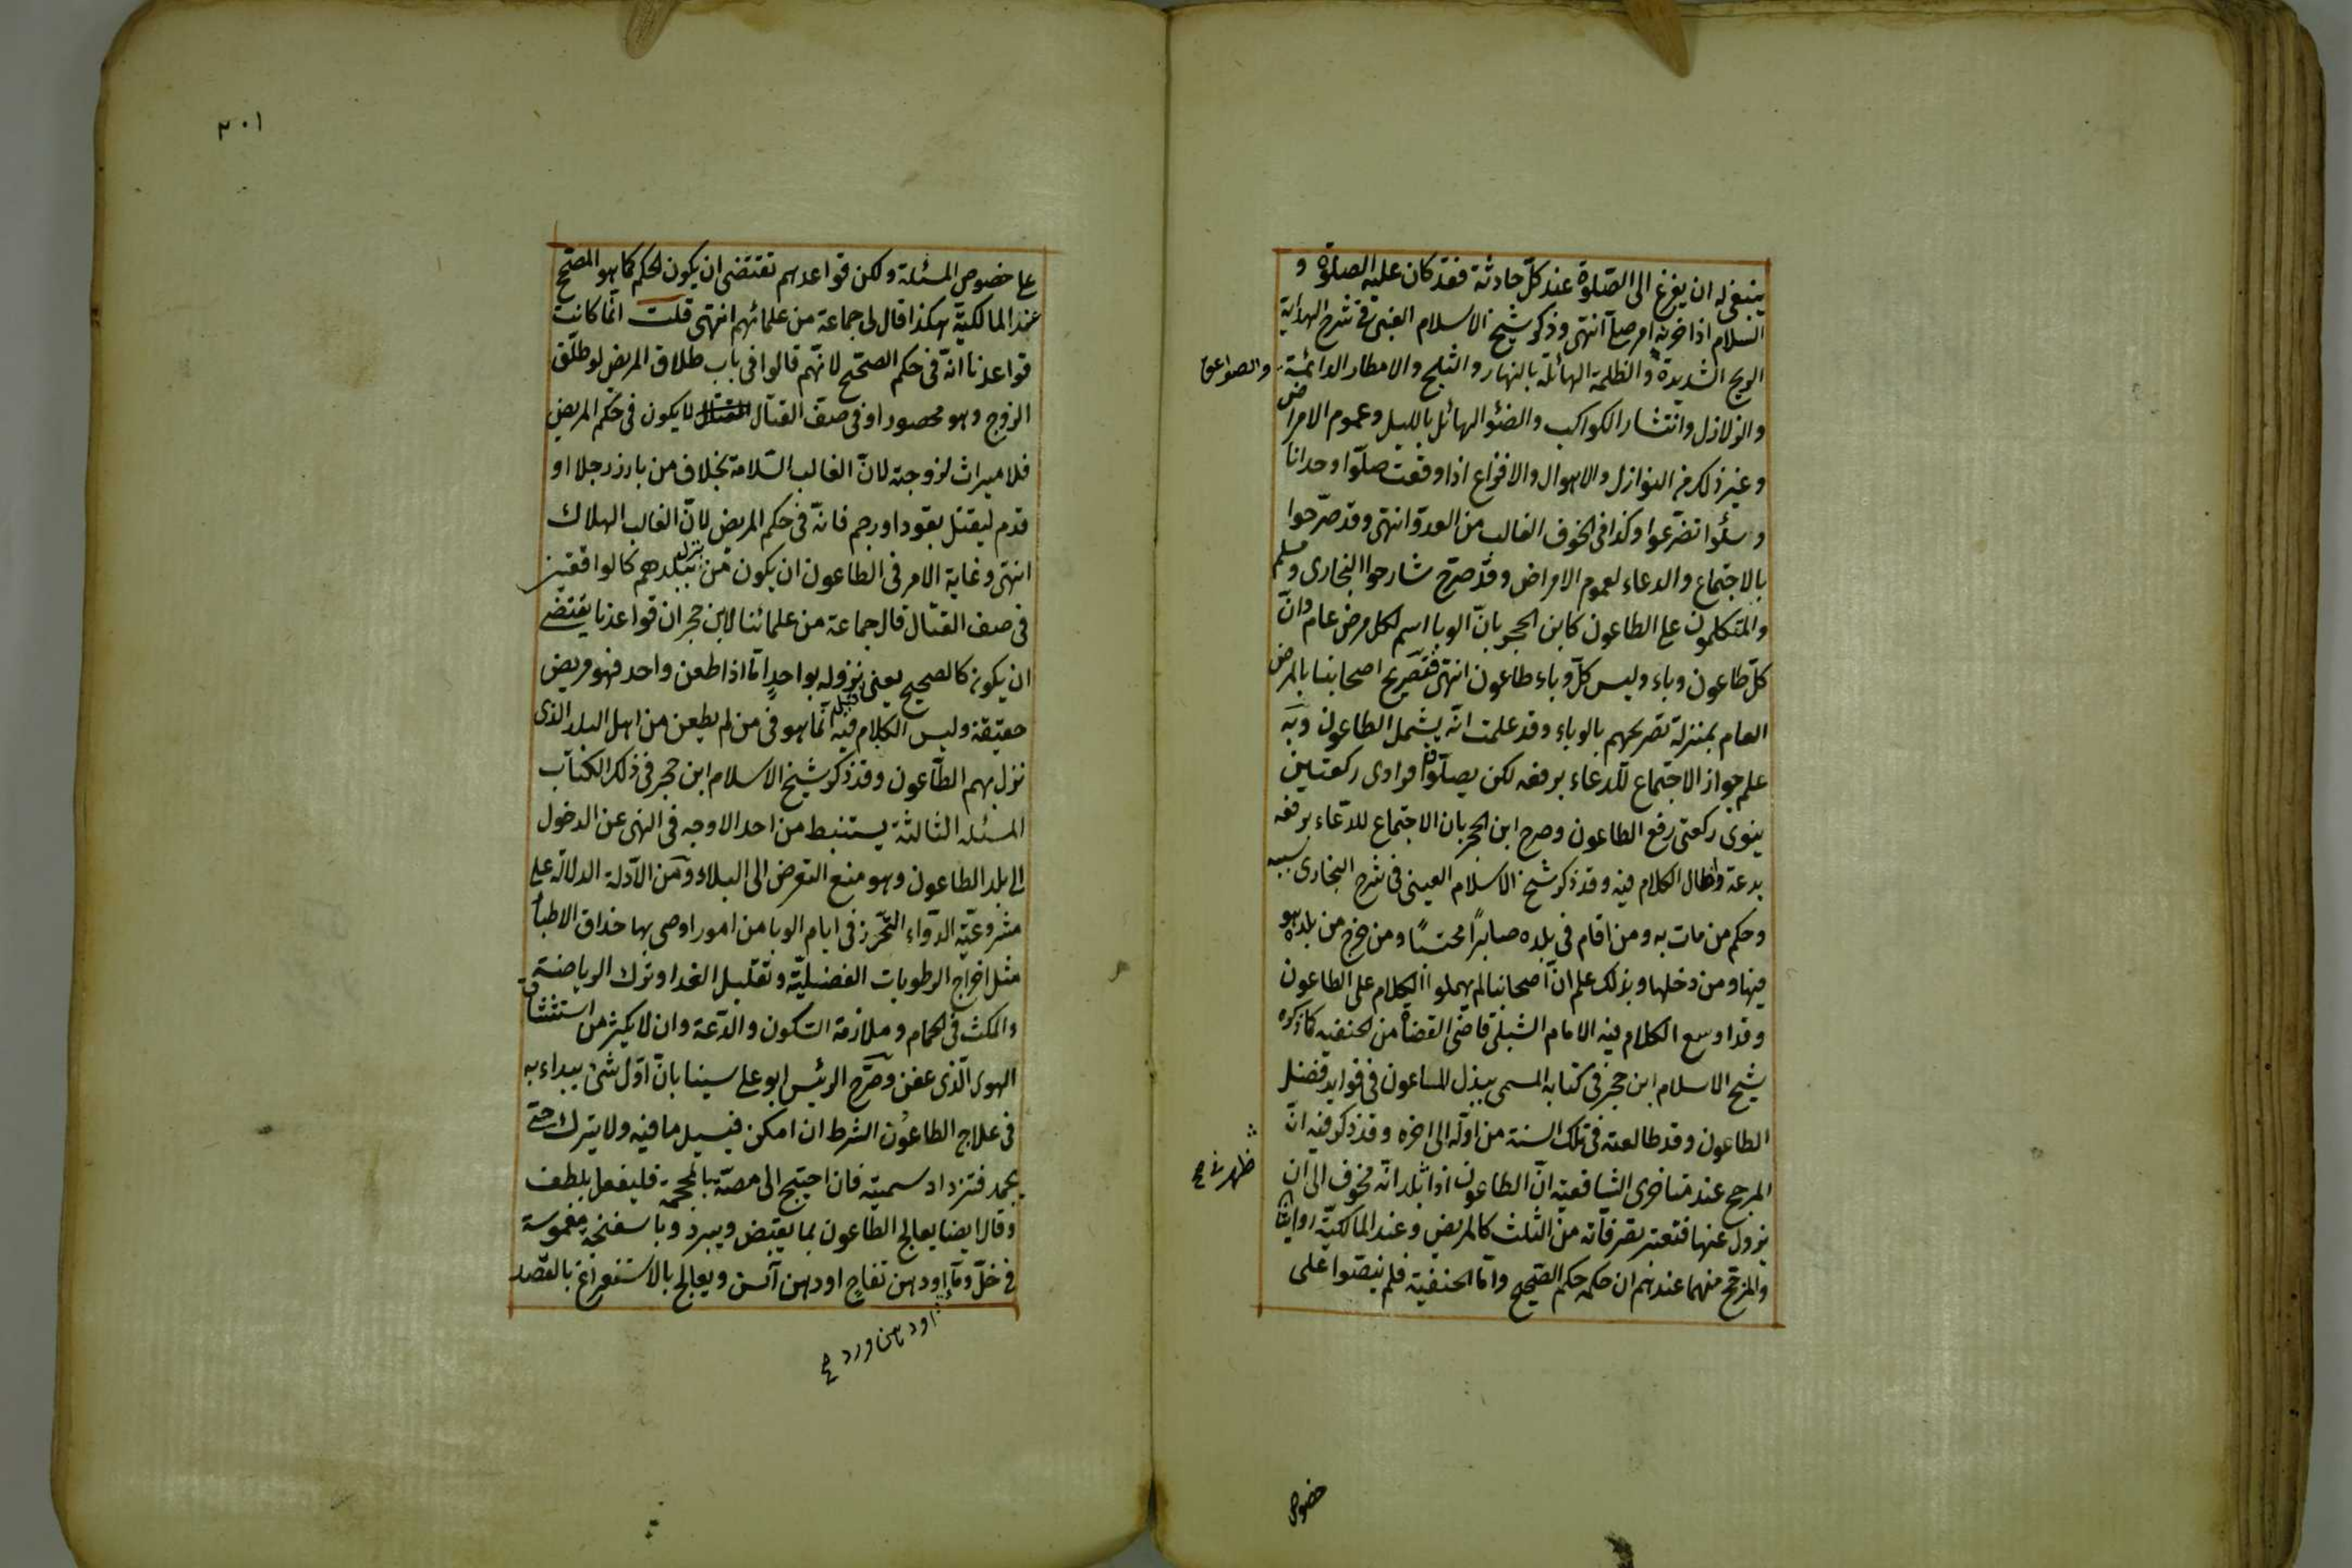 ينبغي له ان يفزع الى الصّلوة عند كلّ حادثة فقد كان عليه الصلوة و
السلام اذا حزبه امر صلّا انتهى وذكر شيخ الاسلام العيني في شرح الهداية
الريح الشديدة والظلمة الهائلة بالنهار والثلج والامطار الدائمة
والصواعق
والزلازل وانتشار الكواكب والضئو الهائل بالليل وعموم الامراض
وغير ذلك من النوازل والاهوال والافزاع اذا وقعت صلّوا وحدانا
وسئلوا تضرّعوا وكذا في الخوف الغالب من العدوّ انتهى وقد صرّحوا
بالاجتماع والدعاء لعموم الامراض وقد صرّح شارحوا البخارى ومسلم
والمتكلمون على الطاعون كابن الحجر بانّ الوبا اسم لكل مرض عام وانّ
كلّ طاعون وباء وليس كلّ وباء طاعون انتهى فتصريح اصحابنا بالمرض
العام بمنزلة تصريحهم بالوباء وقد علمت انّه يشمل الطاعون وبه
علم جواز الاجتماع للدعاء برفعه لكن يصلّون فرادى ركعتين
ينوى ركعتى رفع الطاعون وصرح ابن الحجر بان الاجتماع للدّعاء برفعه
بدعة واطال الكلام فيه وقد ذكر شيخ الاسلام العينى في شرح البخارى سببه
وحكم من مات به ومن اقام في بلده صابرًا محتسبًا ومن خرج من بلد هو
فيها ومن دخلها وبذلك علم انّ اصحابنا لم يهملوا الكلام على الطاعون
وقد اوسع الكلام فيه الامام الشبلى قاضى القضاة من الحنفيه كما ذكره
شيخ الاسلام ابن حجر في كتابه المسمى ببذل الماعون في فوايد فضل
الطاعون وقد طالعته في تلك السنة من اوّله الى اخره وقد ذكر فيه انّ
المرجح عند متاخرى الشافعيّة انّ الطاعون اذا بلد انّه مخوف الى ان
ظهر في صح
يزول عنها فتعتبر تصرفاته من الثلث كالمريض وعند المالكيّة روايتان
والمرجّح منهما عندهم ان حكمه حكم الصّحيح وامّا الحنفيّة فلم ينصّوا على
خصوص
٣٠١
على خصوص المسئلة ولكن قواعدهم تقتضى ان يكون الحكم كما هو المصحّح
عند المالكيّة هكذا قال لى جماعة من علمائهم انتهى قلت انّما كانت
قواعدنا انّه في حكم الصّحيح لانّهم قالوا في باب طلاق المريض لو طلّق
الزوج وهو محصور او في صفّ القتال لا يكون في حكم المريض
فلا ميراث لزوجته لانّ الغالب السّلامة بخلاف من بارز رجلا او
قدم ليقتل بقود او رجم فانّه في حكم المريض لانّ الغالب الهلاك
انتهى وغاية الامر في الطاعون ان يكون من نزل ببلدهم كالواقفين
في صف القتال قال جماعة من علمائنا لابن حجر ان قواعدنا يقتضى
ان يكون كالصحيح يعنى قبل نزوله بواحدٍ امّا اذا طعن واحد فهو مريض
حقيقة وليس الكلام فيه انّما هو في من لم يطعن من اهل البلد الذى
نزل بهم الطّاعون وقد ذكر شيخ الاسلام ابن حجر في ذلك الكتاب
المسئله الثالثة يستنبط من احد الاوجه في النهى عن الدخول
الى بلد الطاعون وهو منع التعرض الى البلاء ومن الادلة الدلالة على
مشروعيّة الدّواء التحّرز في ايام الوبا من امور اوصى بها حذاق الاطبا
مثل اخراج الرطوبات الفضليّة وتقليل الغدا وترك الرياضة
والمكث في الحمام وملازمة السّكون والدّعة وان لا يكثر من استنشاق
الهوى الّذى عفن وصّرح الرئيس ابو على سينا بانّ اوّل شئ يبداء به
في علاج الطاعون الشرط ان امكن فيسيل ما فيه ولا يترك حتى
يجمد فتزداد سميته فان احتيج الى مصّه بالمحجمة فليفعل بلطف
وقال ايضا يعالج الطاعون بما يقبض ويبرد وباسفنجة مغموسة
في خلّ وماءٍ او دهن تفاح او دهن آس ويعالج بالاستفراغ بالفصد
او دهن ورد صح